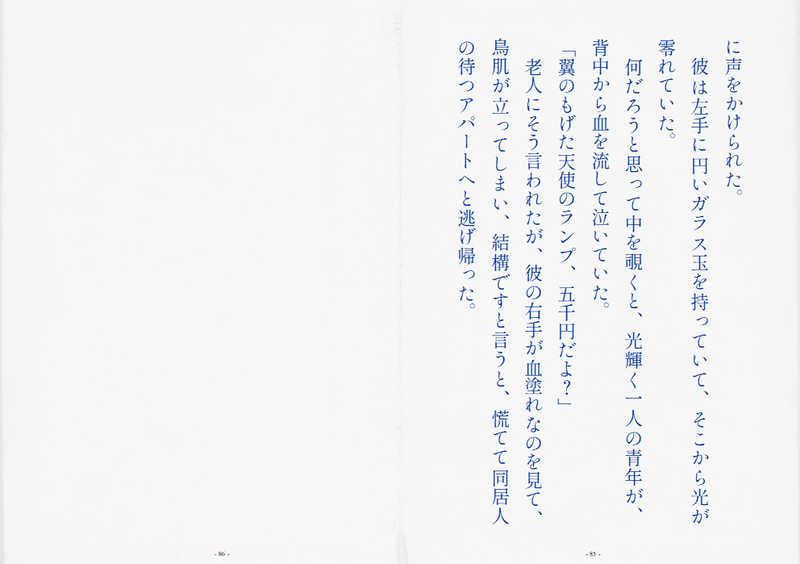 に声をかけられた。
　彼は左手に円いガラス玉を持っていて、そこから光が
零れていた。
　何だろうと思って中を覗くと、光輝く一人の青年が、
背中から血を流して泣いていた。
「翼のもげた天使のランプ、五千円だよ？」
　老人にそう言われたが、彼の右手が血塗れなのを見て、
鳥肌が立ってしまい、結構ですと言うと、慌てて同居人
の待つアパートへと逃げ帰った。
- 85 -
- 86 -